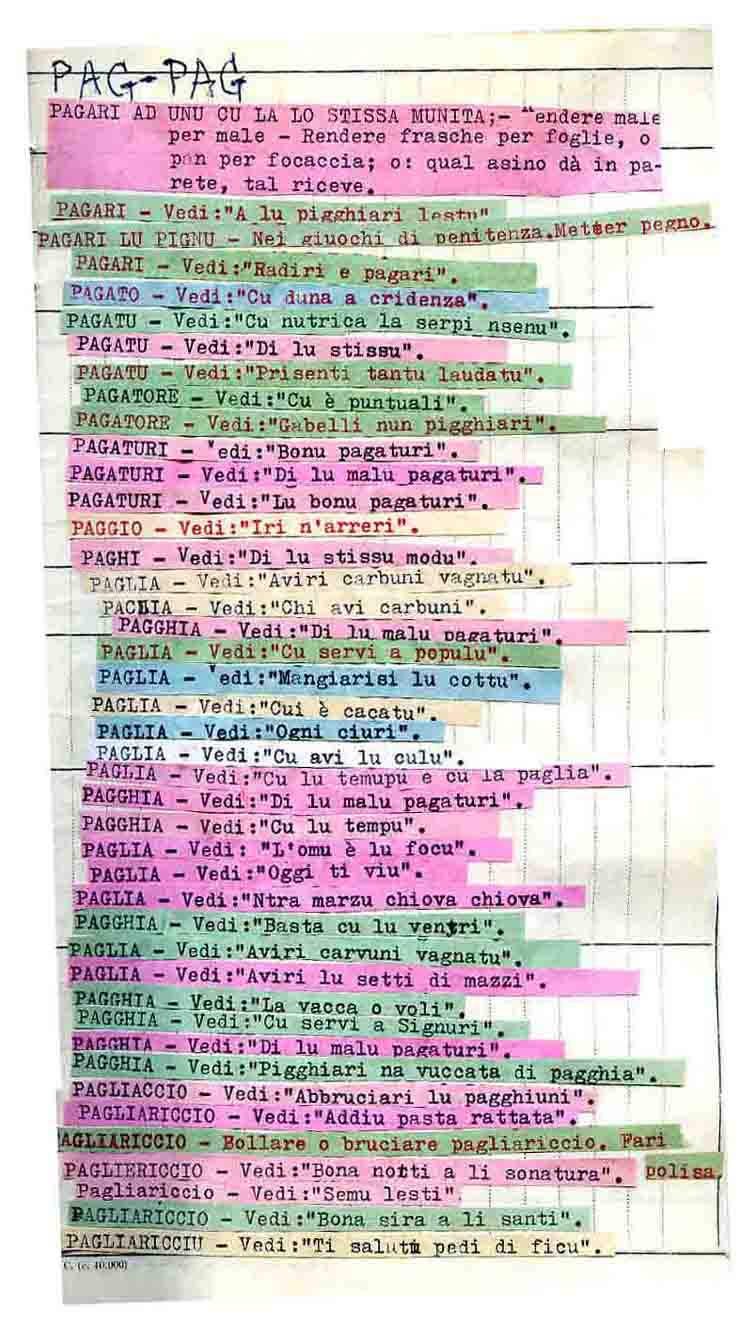 PAG-PAG
PAGARI AD UNU CU LA LO STISSA MUNITA;- "endere male
per male - Rendere frasche per foglie, o
pan per focaccia; o: qual asino dà in pa-
rete, tal riceve.
PAGARI - Vedi:"A lu pigghiari lestu"
PAGARI LU PIGNU - Nei giuochi di penitenza.Metter pegno.
PAGARI - Vedi:"Radiri e pagari".
PAGATO - Vedi:"Cu duna a cridenza".
PAGATU - Vedi:"Cu nutrica la serpi nsenu".
PAGATU - Vedi:"Di lu stissu".
PAGATU - Vedi:"Prisenti tantu laudatu".
PAGATORE - Vedi:"Cu è puntuali".
PAGATORE - Vedi:"Gabelli nun pigghiari".
PAGATURI - Vedi:"Bonu pagaturi".
PAGATURI - Vedi:"Di lu malu pagaturi".
PAGATURI - Vedi:"Lu bonu pagaturi".
PAGGIO - Vedi:"Iri n'arreri".
PAGHI - Vedi:"Di lu stissu modu".
PAGLIA - Vedi:"Aviri carbuni vagnatu".
PAGLIA - Vedi:"Chi avi carbuni".
PAGGHIA - Vedi:"Di lu malu pagaturi".
PAGLIA - Vedi:"Cu servi a populu".
PAGLIA - Vedi:"Mangiarisi lu cottu".
PAGLIA - Vedi:"Cui è cacatu".
PAGLIA - Vedi:"Ogni ciuri".
PAGLIA - Vedi:"Cu avi lu culu".
PAGLIA - Vedi:"Cu lu temupu e cu la paglia".
PAGGHIA - Vedi:"Di lu malu pagaturi".
PAGGHIA - Vedi:"Cu lu tempu".
PAGLIA - Vedi: "L'omu è lu focu".
PAGLIA - Vedi:"Oggi ti viu".
PAGLIA - Vedi:"Ntra marzu chiova chiova".
PAGGHIA - Vedi:"Basta cu lu ventri".
PAGLIA - Vedi:"Aviri carvuni vagnatu".
PAGLIA - Vedi:"Aviri lu setti di mazzi".
PAGGHIA - Vedi:"La vacca o voli".
PAGGHIA - Vedi:"Cu servi a Signuri".
PAGGHIA - Vedi:"Di lu malu pagaturi".
PAGGHIA - Vedi:"Pigghiari na vuccata di pagghia".
PAGLIACCIO - Vedi:"Abbruciari lu pagghiuni".
PAGLIARICCIO - Vedi:"Addiu pasta rattata".
AGLIARICCIO - Bollare o bruciare pagliariccio. Fari
polisa
PAGLIERICCIO - Vedi:"Bona notti a li sonatura".
Pagliariccio - Vedi:"Semu lesti"
PAGLIARICCIO - Vedi:"Bona sira a li santi".
PAGLIARICCIU - Vedi:"Ti saluti pedi di ficu".
C. (c. 40.000)